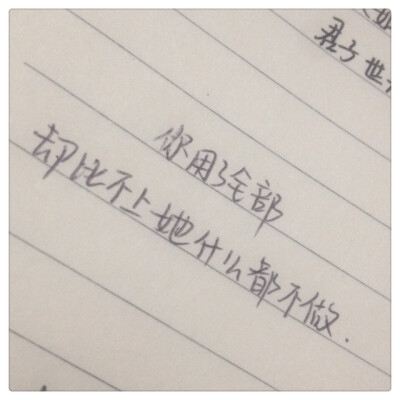 君子世
你用了全部
却比不上她什么都不做.